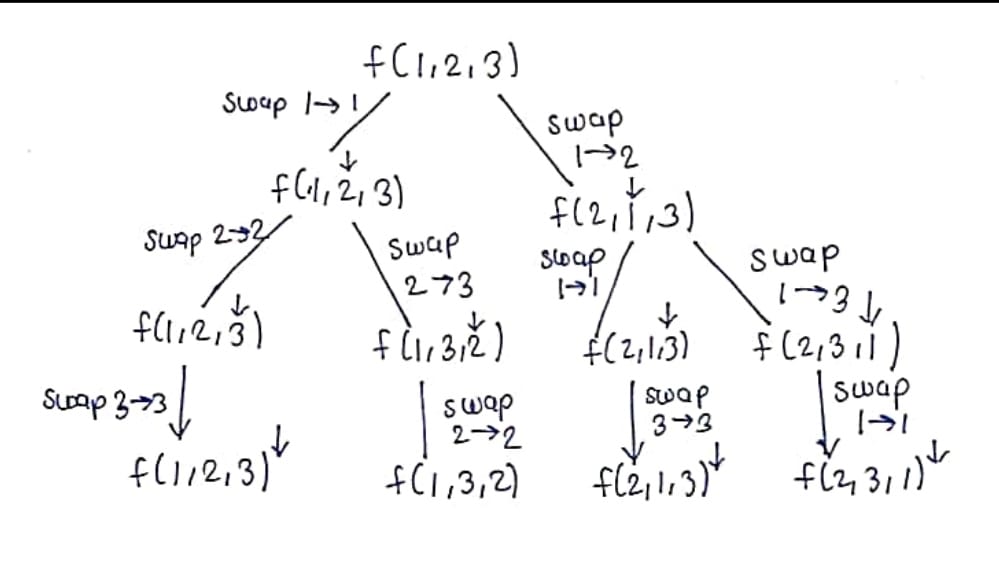 f(1,2,3)
swap 1→1
swap
1→2
↓
f(1,2,3)
↓
f(2,1,3)
swap 2→2
swap
2→3
swap
1→1
swap
1→3
↓
f(1,2,3)
↓
f(1,3,2)
↓
f(2,1,3)
↓
f(2,3,1)
swap 3→3
swap
2→2
swap
3→3
swap
1→1
f(1,2,3)↓
f(1,3,2)
f(2,1,3)↓
f(2,3,1)↓